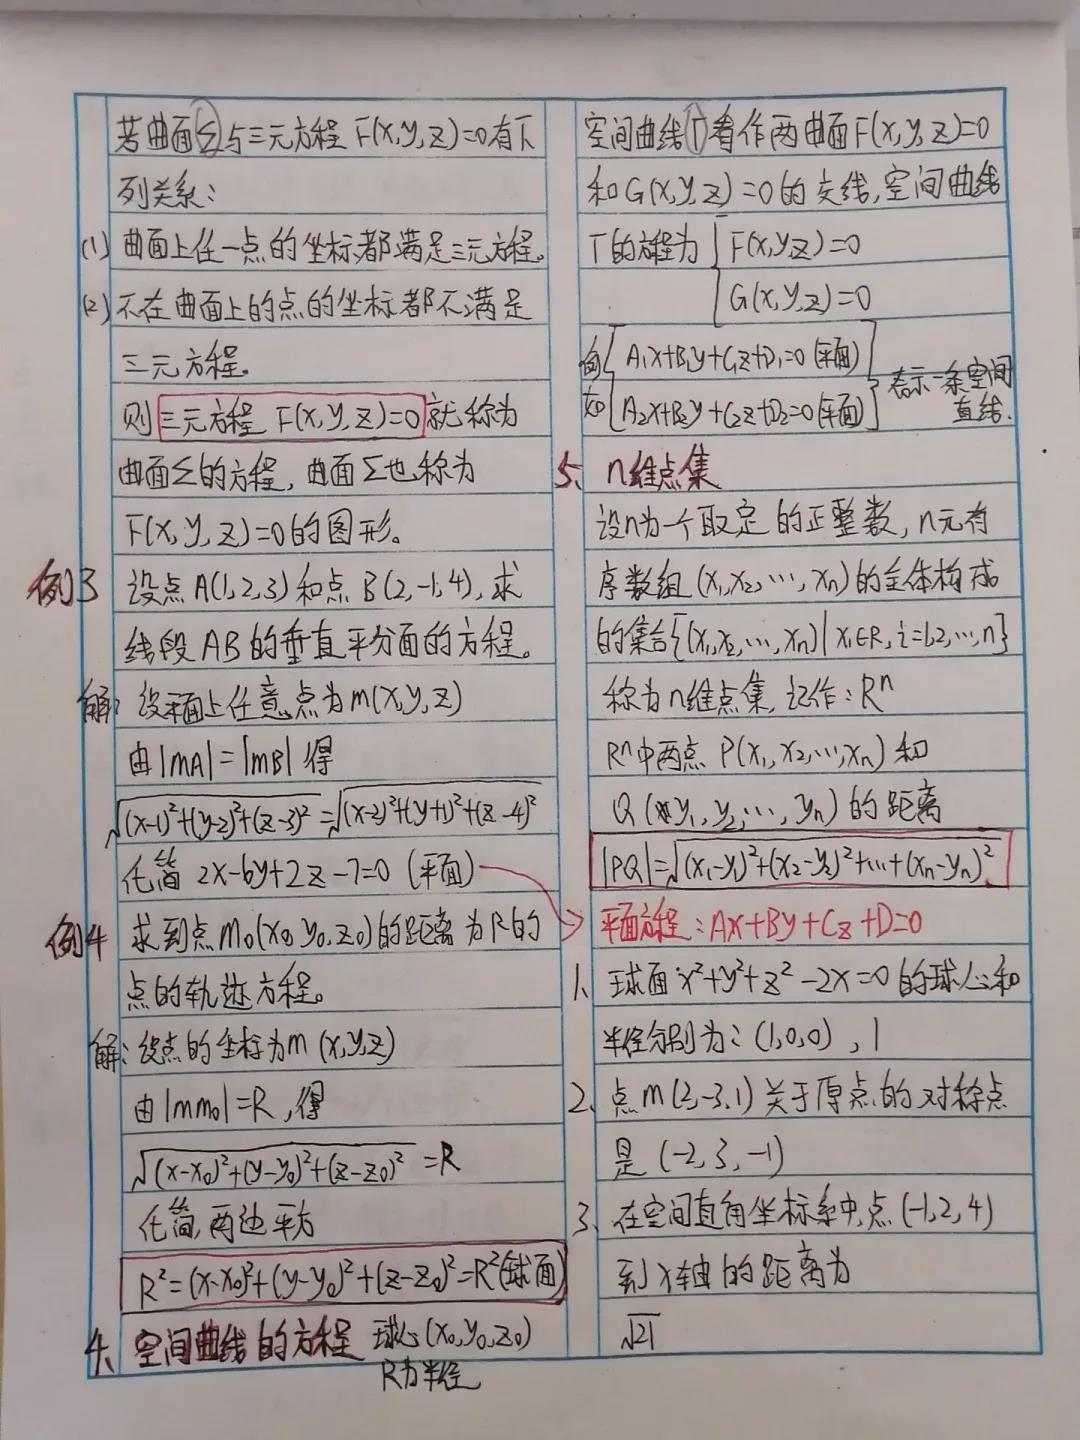 若曲面Σ与三元方程 F(x,y,z)=0有下
列关系：
(1) 曲面上任一点的坐标都满足三元方程。
(2) 不在曲面上的点的坐标都不满足
三元方程。
则三元方程 F(x,y,z)=0就称为
曲面Σ的方程，曲面Σ也称为
F(x,y,z)=0的图形。
例3 设点A(1,2,3)和点B(2,-1,4),求
线段AB的垂直平分面的方程。
解：设平面上任意点为m(x,y,z)
由|mA|=|mB|得
√(x-1)²+(y-2)²+(z-3)² =√(x-2)²+(y+1)²+(z-4)²
化简 2x-6y+2z-7=0 (平面)
例4 求到点m₀(x₀,y₀,z₀)的距离为R的
点的轨迹方程。
解：设点的坐标为m(x,y,z)
由|mm₀|=R,得
√(x-x₀)²+(y-y₀)²+(z-z₀)² =R
化简,两边平方
R²=(x-x₀)²+(y-y₀)²+(z-z₀)²=R²(球面)
4、空间曲线的方程 球心(x₀,y₀,z₀)
R为半径
空间曲线Γ看作两曲面F(x,y,z)=0
和G(x,y,z)=0的交线,空间曲线
Γ的方程为{F(x,y,z)=0
G(x,y,z)=0
如{A₁x+B₁y+C₁z+D₁=0(平面)
A₂x+B₂y+C₂z+D₂=0(平面)} 表示一条空间
直线.
5、n维点集
设n为一个取定的正整数,n元有
序数组(x₁,x₂,…,xn)的全体构成
的集合{(x₁,x₂,…,xn)|xi∈R,i=1,2,…,n}
称为n维点集,记作：Rⁿ
Rⁿ中两点P(x₁,x₂,…,xn)和
Q(y₁,y₂,…,yn)的距离
|PQ|=√(x₁-y₁)²+(x₂-y₂)²+…+(xn-yn)²
平面方程：Ax+By+Cz+D=0
1、球面x²+y²+z²-2x=0的球心和
半径分别为：(1,0,0),1
2、点m(2,-3,1)关于原点的对称点
是(-2,3,-1)
3、在空间直角坐标系中,点(-1,2,4)
到x轴的距离为
√21